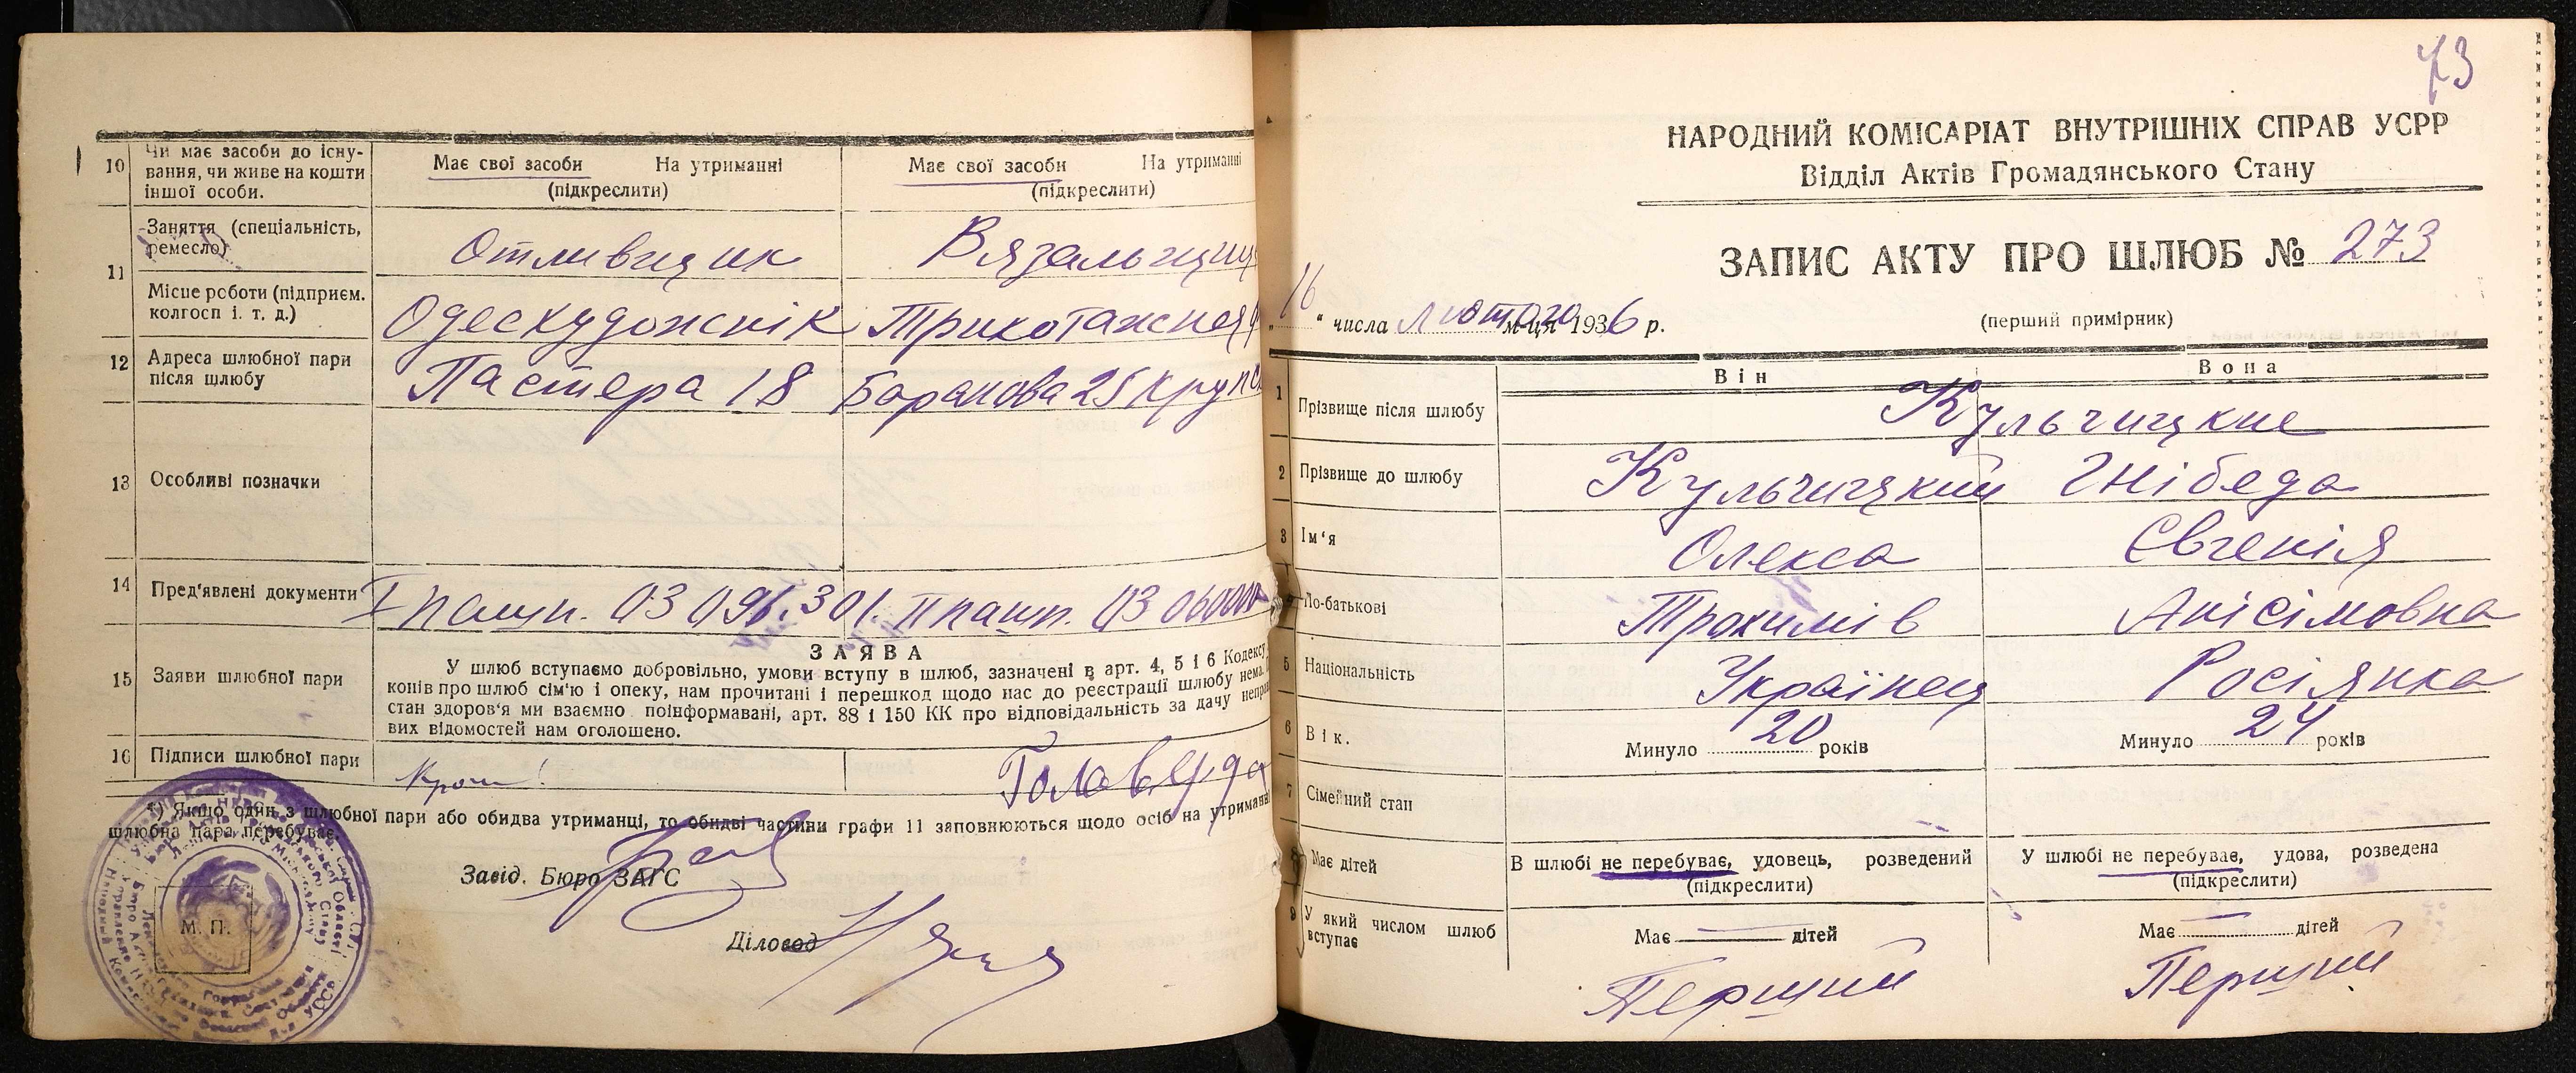 10 Чи має засоби до існу-
вання, чи живе на кошти
іншої особи.
Має свої засоби На утриманні
(підкреслити)
Має свої засоби На утриманні
(підкреслити)
11 Заняття (спеціальність,
ремесло)
Отливщик
Вязальщиц
Місце роботи (підприєм.
колгосп і. т. д.)
Одесхудожнік
Трикотажная
12 Адреса шлюбної пари
після шлюбу
Пастера 18
Баранова 25
13 Особливі позначки
14 Пред'явлені документи
I пашп. 03 II пашп. 03
15 Заяви шлюбної пари
ЗАЯВА
У шлюб вступаємо добровільно, умови вступу в шлюб, зазначені в арт. 4, 5 і 6 Кодексу
конів про шлюб сім'ю і опеку, нам прочитані і перешкод щодо нас до реєстрації шлюбу нема.
стан здоров'я ми взаємно поінформавані, арт. 88 і 150 КК про відповідальність за дачу неправ
вих відомостей нам оголошено.
16 Підписи шлюбної пари
*) Якщо один з шлюбної пари або обидва утриманці, то обидві частини графи 11 заповнюються щодо осіб на утриманні
шлюбна пара перебуває.
Завід. Бюро ЗАГС
Діловод
М. П.
73
НАРОДНИЙ КОМІСАРІАТ ВНУТРІШНІХ СПРАВ УСРР
Відділ Актів Громадянського Стану
ЗАПИС АКТУ ПРО ШЛЮБ № 273
„16“ числа лютого м-ця 1936 р.
(перший примірник)
Він
Вона
1 Прізвище після шлюбу
Кульчицкие
2 Прізвище до шлюбу
Кульчицкий
Гнібеда
3 Ім'я
Олекса
Євгенія
По-батькові
Трохимів
Анісімовна
5 Національність
Українец
Росіянка
6 Вік.
Минуло 20 років
Минуло 24 років
7 Сімейний стан
8 Має дітей
В шлюбі не перебуває, удовець, розведений
(підкреслити)
У шлюбі не перебуває, удова, розведена
(підкреслити)
9 У який числом шлюб
вступає
Має дітей
Має дітей
Перший
Перший